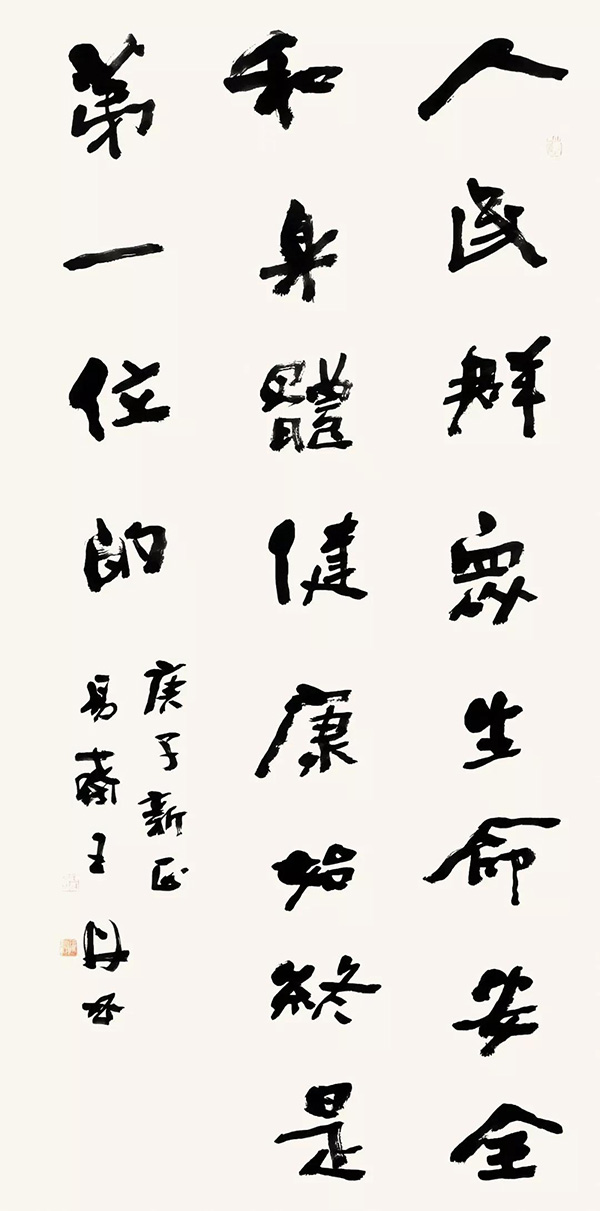 人民群眾生命安全
和身體健康始終是
第一位的
庚子新正
易齋王丹书